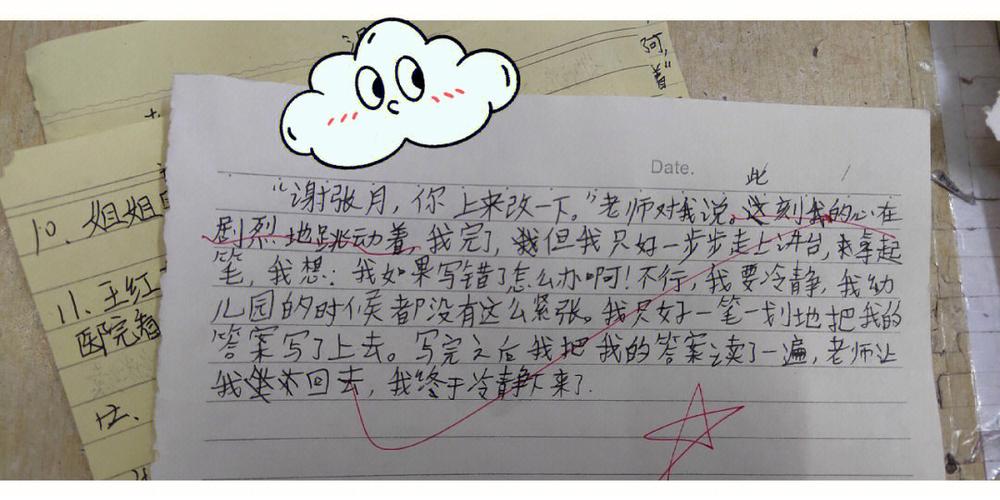 阿
10、姐姐
11.王红
医院
十二、
Date.
此
"谢张月，你上来改一下。"老师对我说，这刻我的心在
剧烈地跳动着，我完了，我但我只好一步步走上讲台，来拿起
笔，我想：我如果写错了怎么办啊！不行，我要冷静，我幼
儿园的时候都没有这么紧张。我只好一笔一划地把我的
答案写了上去。写完之后我把我的答案读了一遍，老师让
我坐次回去，我终于冷静下来了.